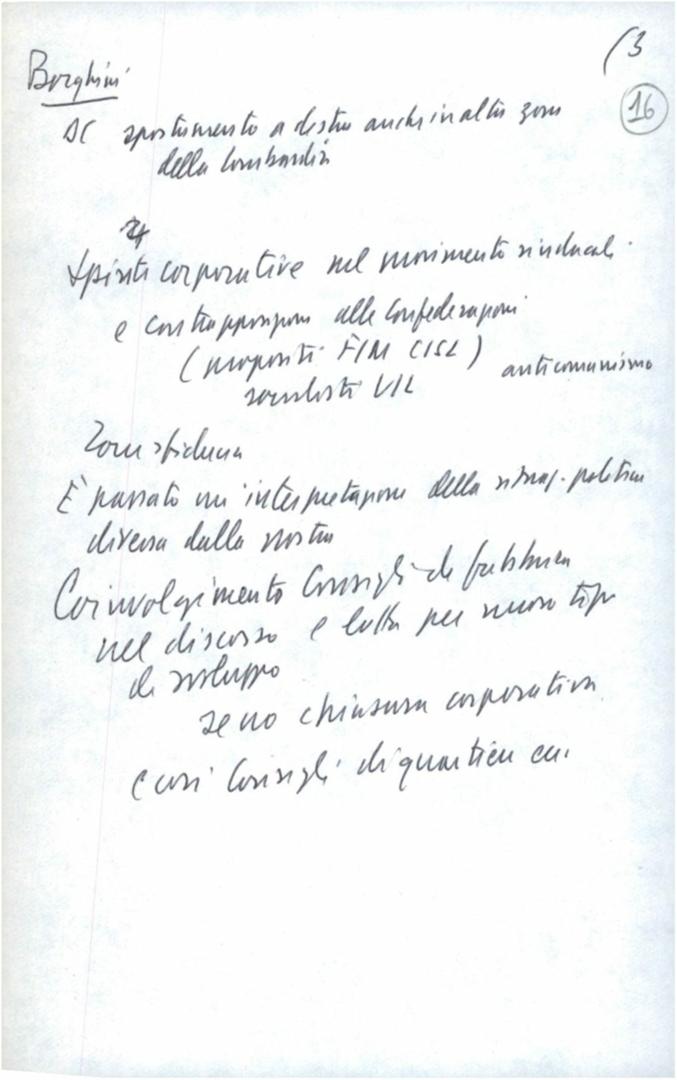 (3
16
Borghini
DC spostamento a destra anche in altre zone
della Lombardia
Spinte corporative nel movimento sindacale
e contrapposizioni alle Confederazioni
(propositi FIM CISL) anticomunismo
socialisti UIL
Zone sfiducia
È passato un'interpretazione della situaz. politica
diversa dalla nostra
Coinvolgimento Consigli di fabbrica
nel discorso e lotta per nuovo tipo
di sviluppo
se no chiusura corporativa
e così Consigli di quartiere ecc.